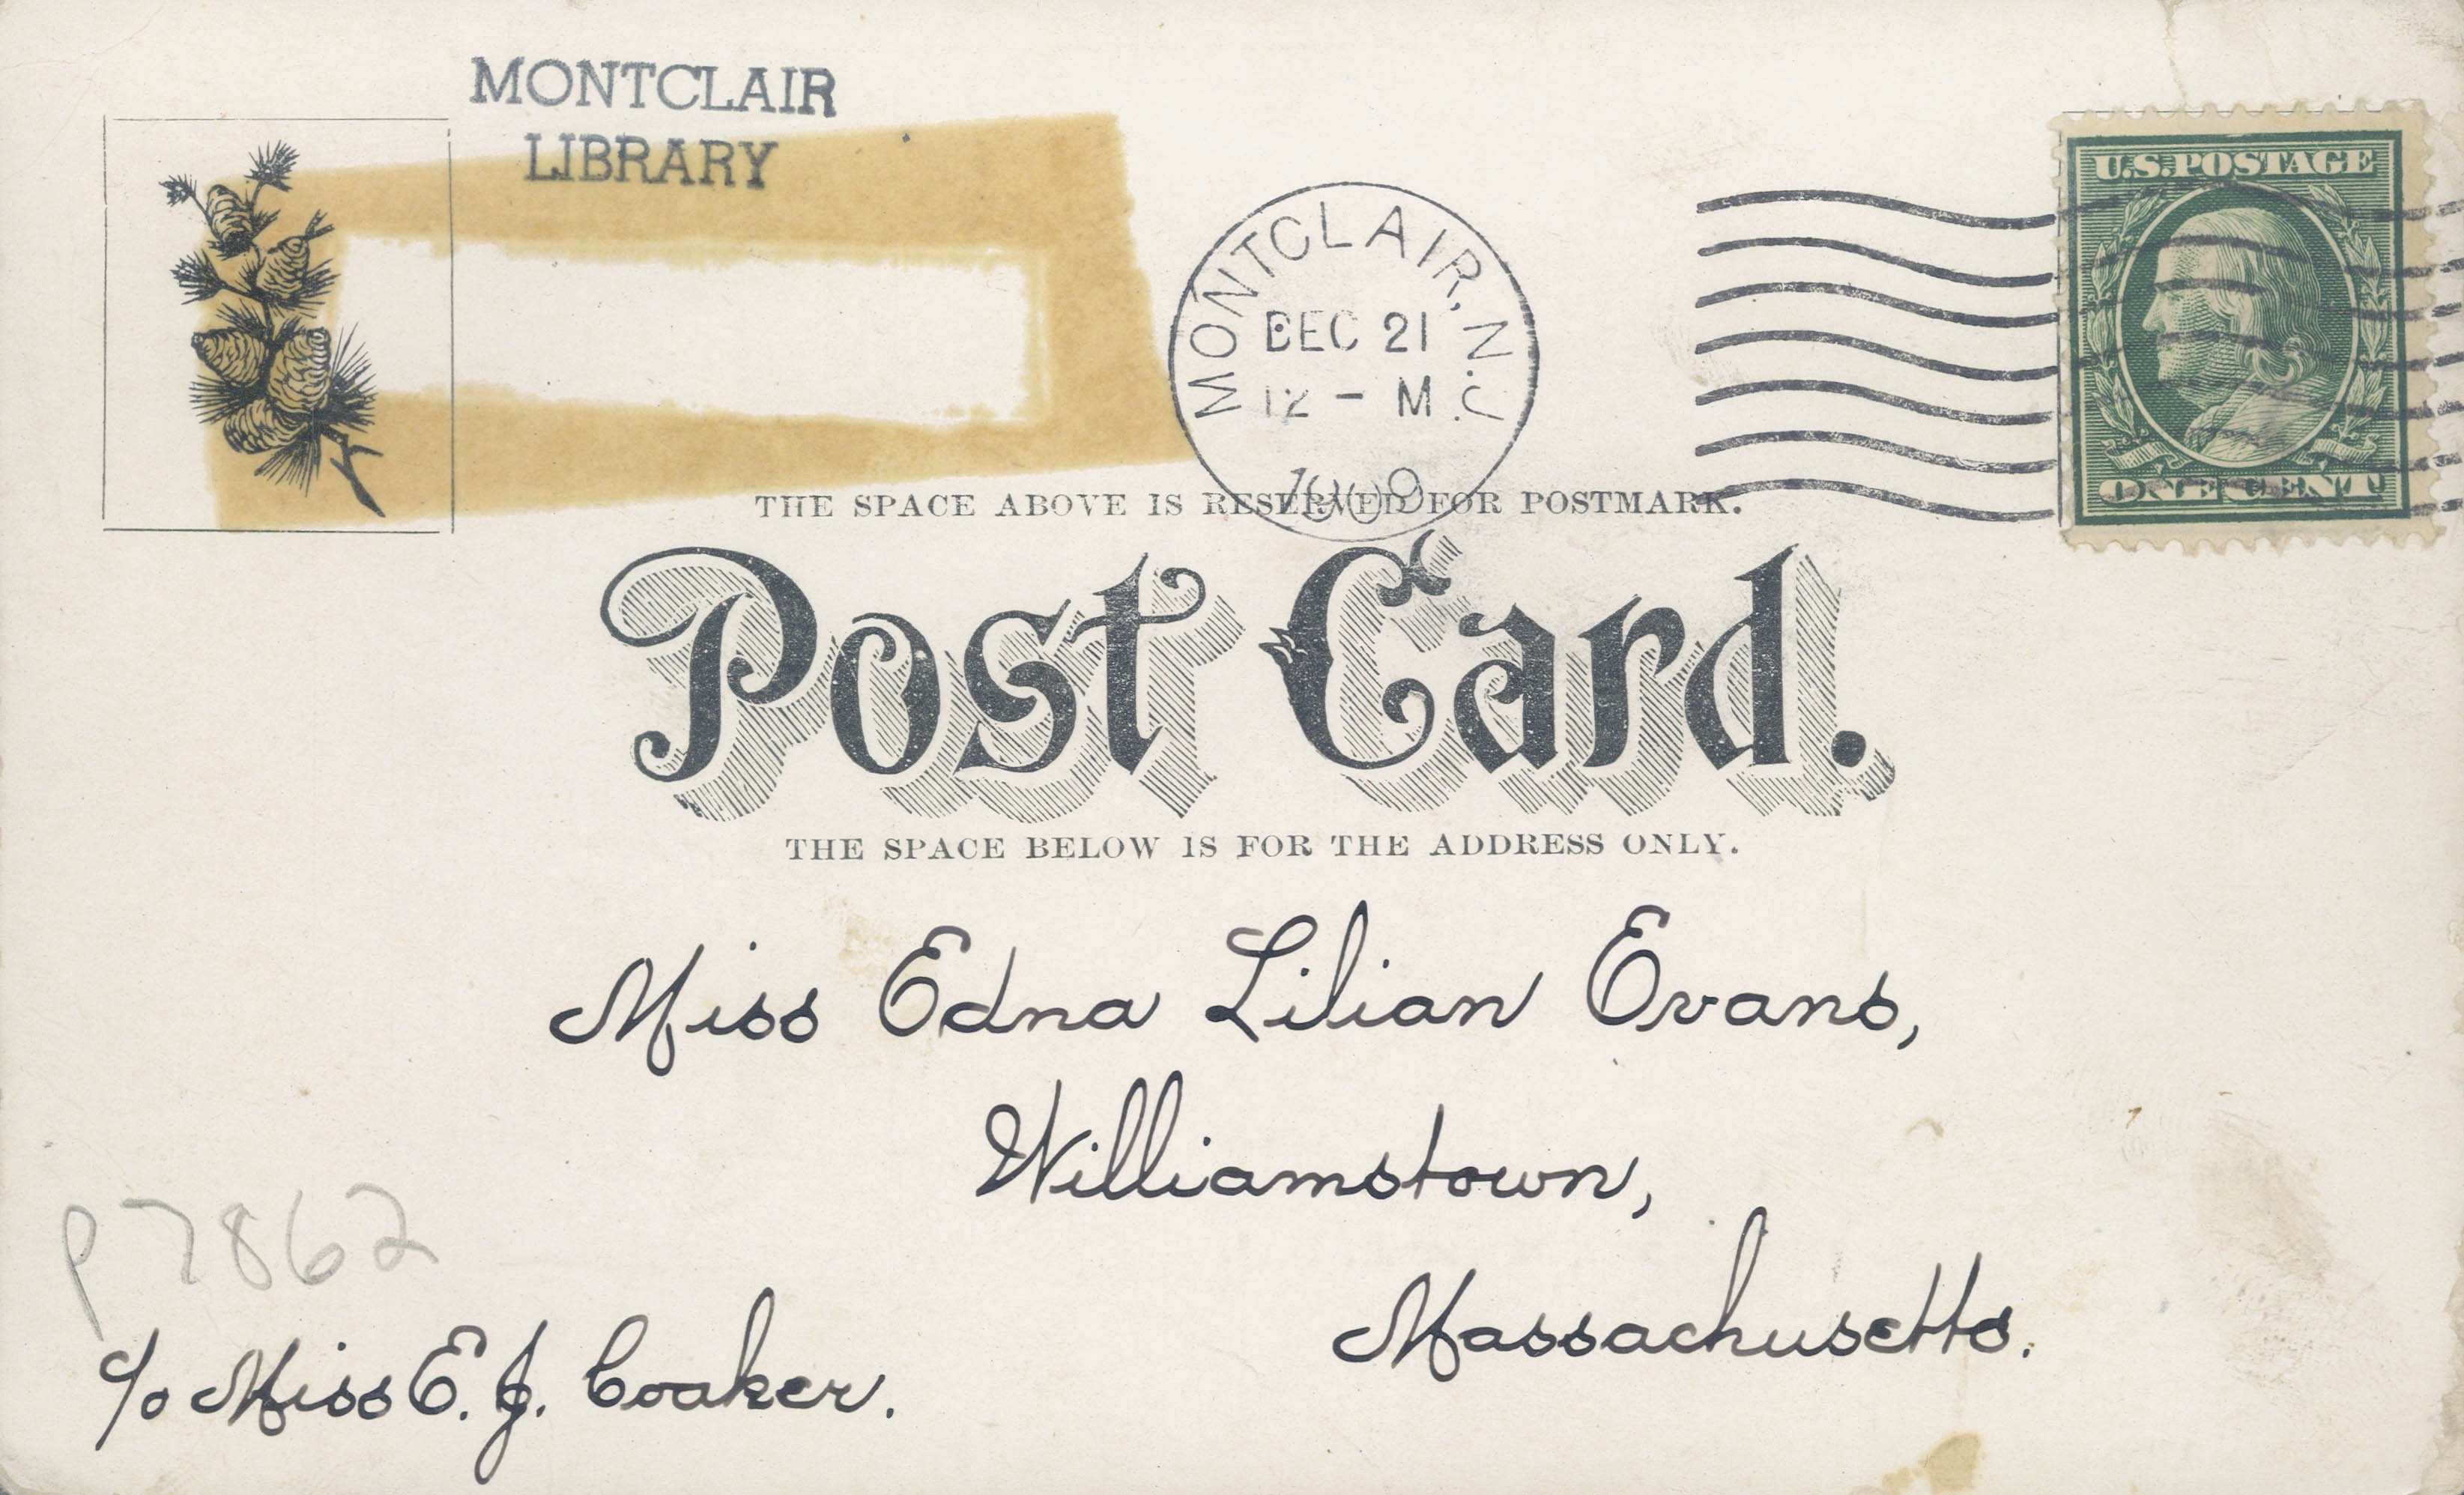 MONTCLAIR
LIBRARY
MONTCLAIR, N.J.
DEC 21
12 - M
1909
U.S. POSTAGE
ONE CENT
THE SPACE ABOVE IS RESERVED FOR POSTMARK.
Post Card.
THE SPACE BELOW IS FOR THE ADDRESS ONLY.
Miss Edna Lilian Evans,
Williamstown,
Massachusetts.
P7862
c/o Miss E. J. Coaker.